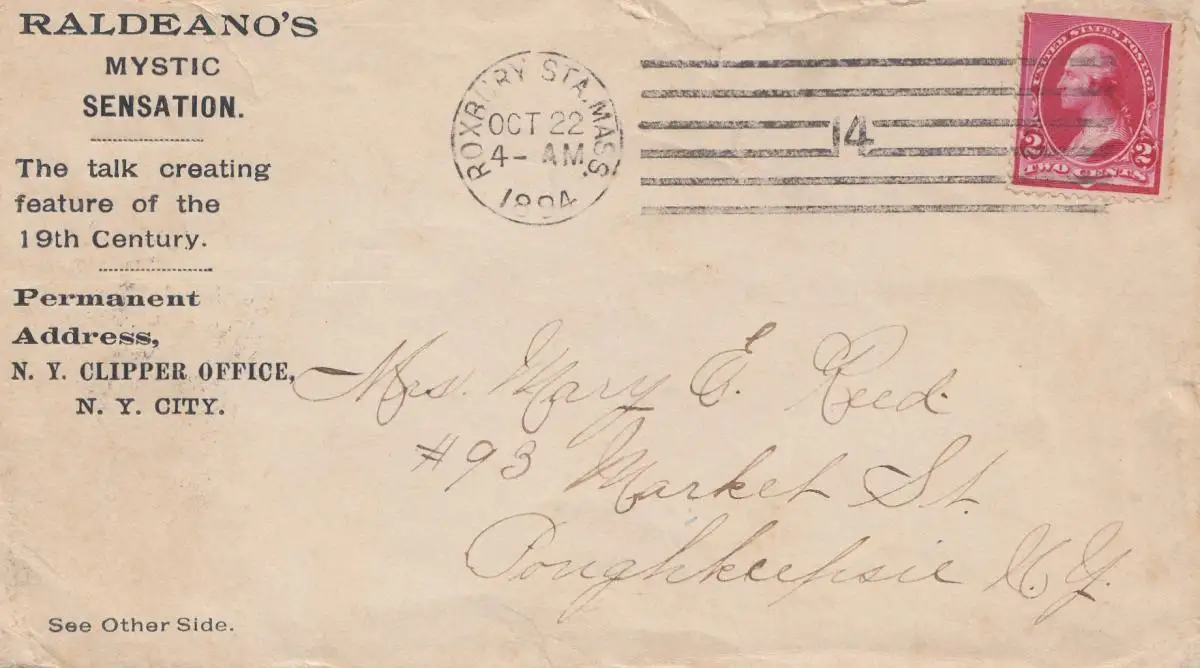 RALDEANO'S
MYSTIC
SENSATION.
The talk creating
feature of the
19th Century.
Permanent
Address,
N. Y. CLIPPER OFFICE,
N. Y. CITY.
See Other Side.
ROXBURY STA. MASS.
OCT 22
4- AM
1894
14
UNITED STATES POSTAGE
2 2
TWO CENTS
Mrs. Mary E. Reed.
#93 Market St.
Poughkeepsie N.Y.